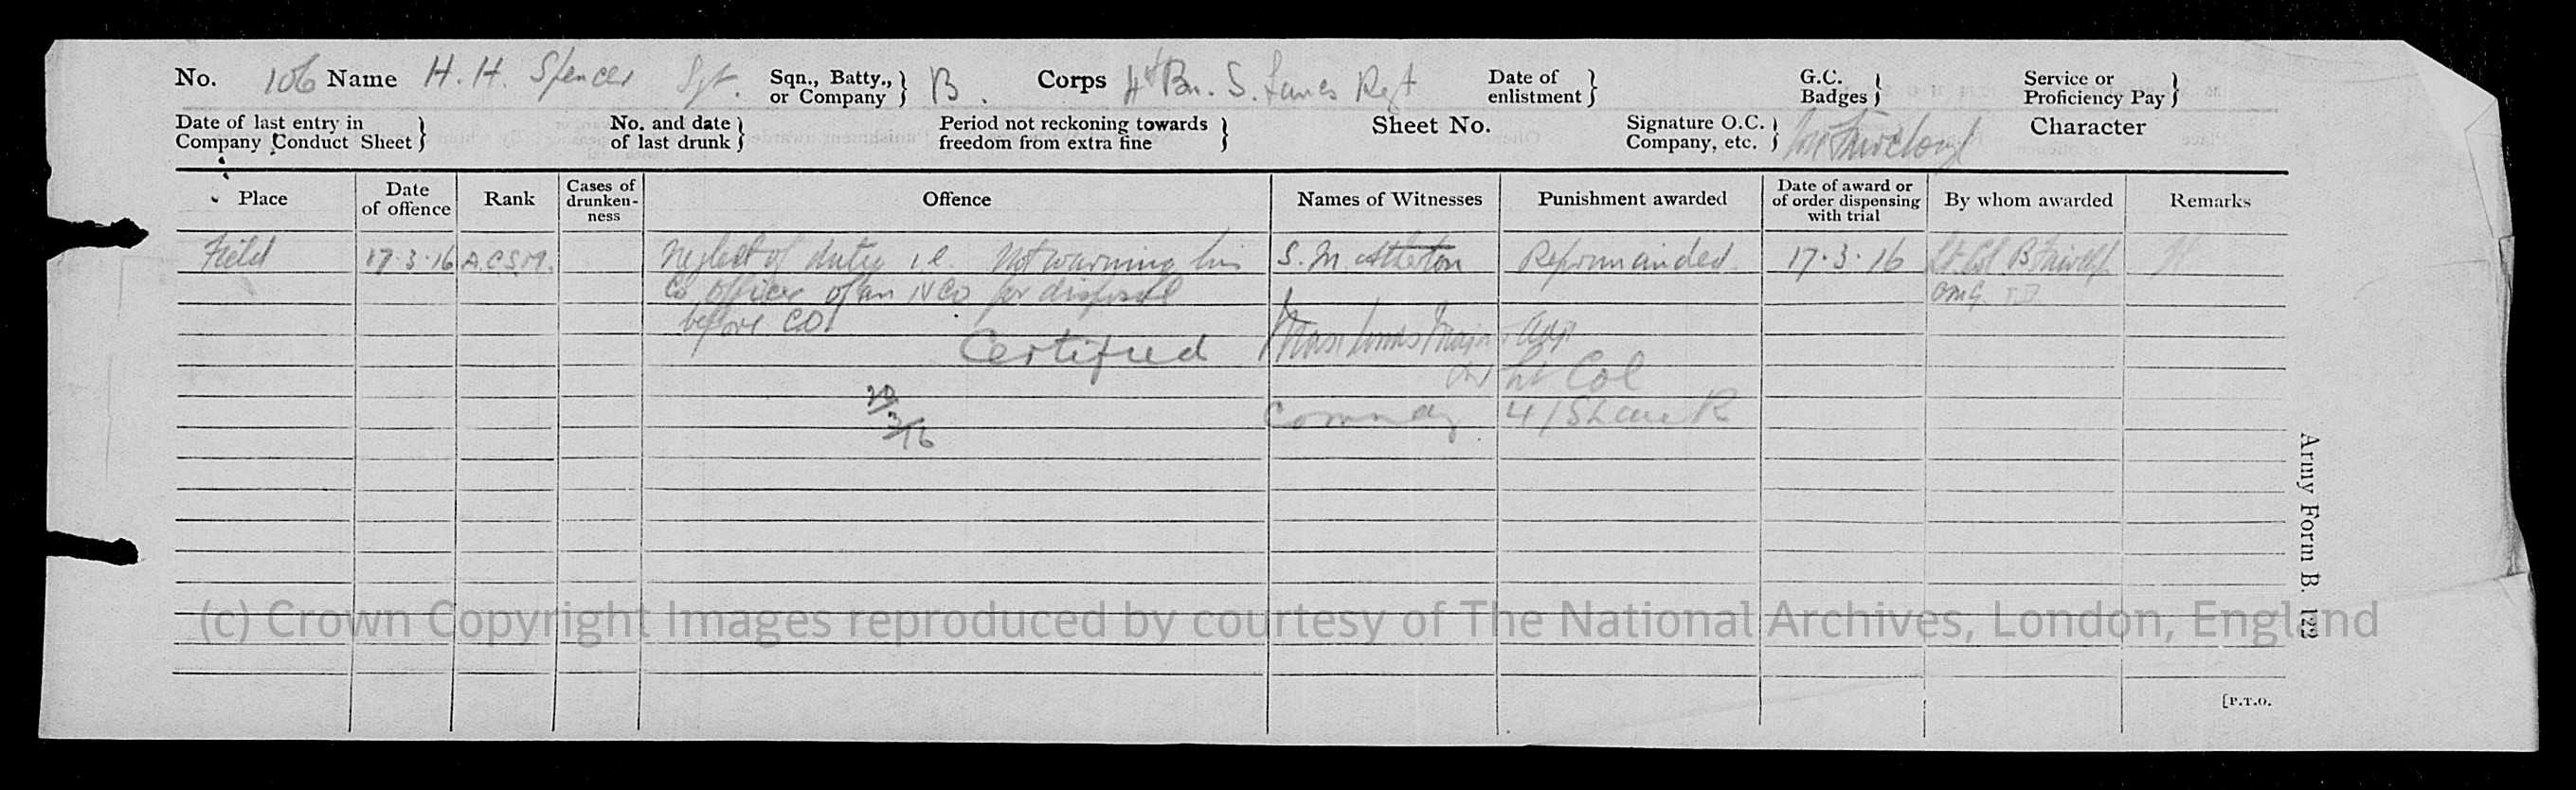 No. 106 Name H. H. Spencer Sgt. Sqn., Batty., or Company } B. Corps 4th Bn. S. Lancs Regt Date of enlistment } G.C. Badges } Service or Proficiency Pay }
Date of last entry in Company Conduct Sheet } No. and date of last drunk } Period not reckoning towards freedom from extra fine } Sheet No. Signature O.C. Company, etc. } Fairclough Character
Place Date of offence Rank Cases of drunken-ness Offence Names of Witnesses Punishment awarded Date of award or of order dispensing with trial By whom awarded Remarks
Field 17.3.16 A.C.S.M. Neglect of duty i.e. Not warning his S. M. Atherton Reprimanded. 17.3.16 Lt. Col B Fairclough
Co officer of an NCO for disposal CMG TD
before CO.
Certified Major Adjt
for Lt Col
20/3/16 Commdg 4/S Lanc R
Army Form B. 122
(c) Crown Copyright Images reproduced by courtesy of The National Archives, London, England
[P.T.O.